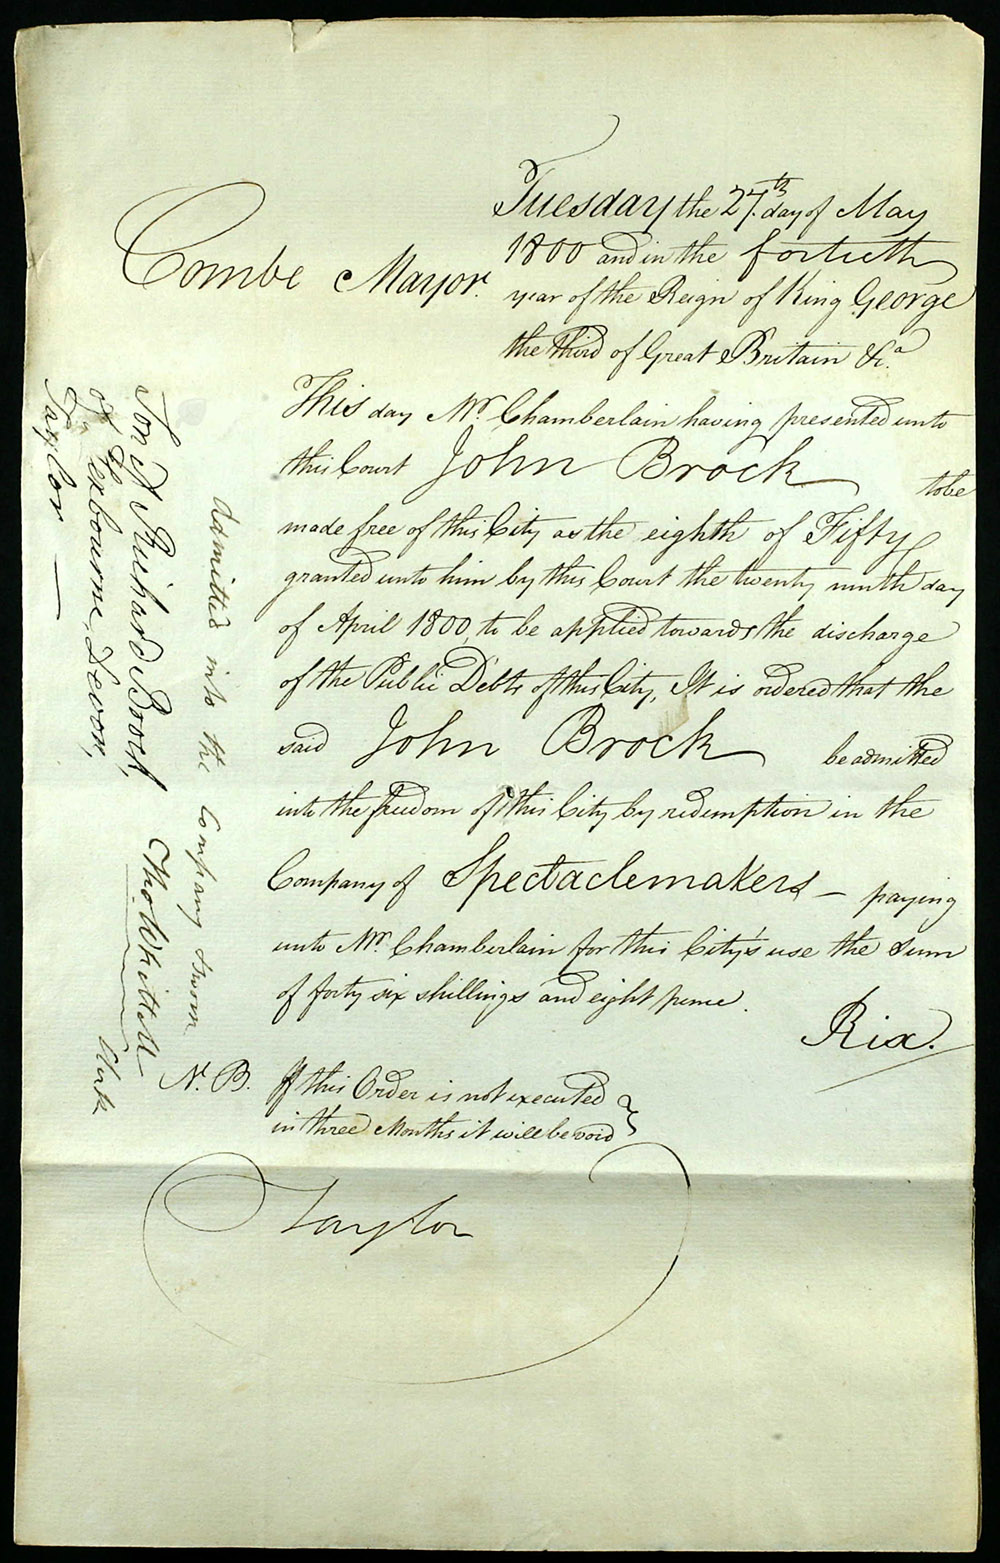 Combe Mayor.
Tuesday the 27th. day of May
1800 and in the fortieth
year of the Reign of King George
the third of Great Britain &c.a
This day Mr. Chamberlain having presented unto
this Court John Brock to be
made free of this City as the eighth of Fifty
granted unto him by this Court the twenty ninth day
of April 1800, to be applied towards the discharge
of the Public Debts of this City, It is ordered that the
said John Brock be admitted
into the freedom of this City by redemption in the
Company of Spectaclemakers – paying
unto Mr Chamberlain for this City's use the Sum
of forty six shillings and eight pence.
Rix.
N. B. If this Order is not executed
in three Months it will be void
Taylor
Admitted into the Company & sworn
Tho Whittell Clerk
Son of Richard Brock,
of Exbourne, Devon,
Taylor —